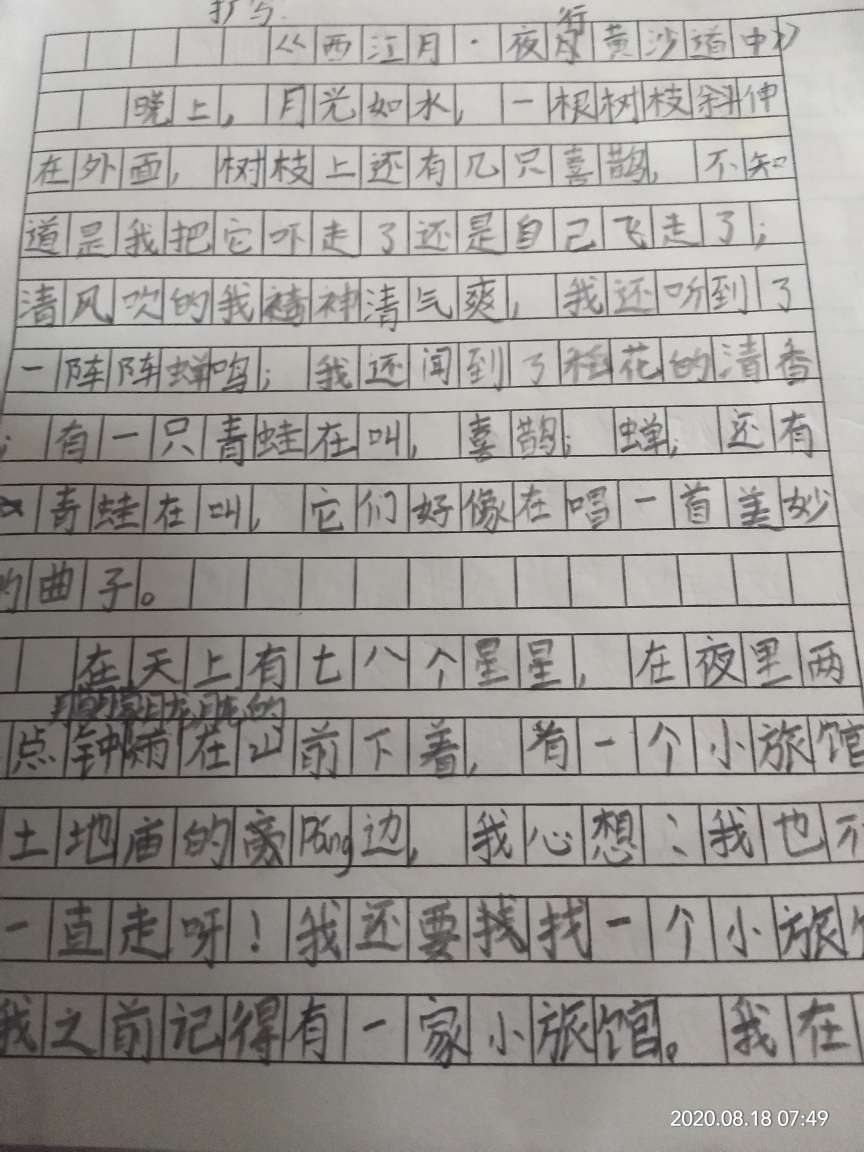 打写
行
《西江月·夜黄沙道中》
晚上，月光如水，一根树枝斜伸
在外面，树枝上还有几只喜鹊，不知
道是我把它吓走了还是自己飞走了；
清风吹的我神清气爽，我还听到了
一阵阵蝉鸣；我还闻到了稻花的清香
；有一只青蛙在叫，喜鹊；蝉；还有
青蛙在叫，它们好像在唱一首美妙
的曲子。
在天上有七八个星星，在夜里两
点钟雨在山前下着，有一个小旅馆
土地庙的旁Páng边，我心想：我也不
一直走呀！我还要找找一个小旅
我之前记得有一家小旅馆。我在
2020.08.18 07:49